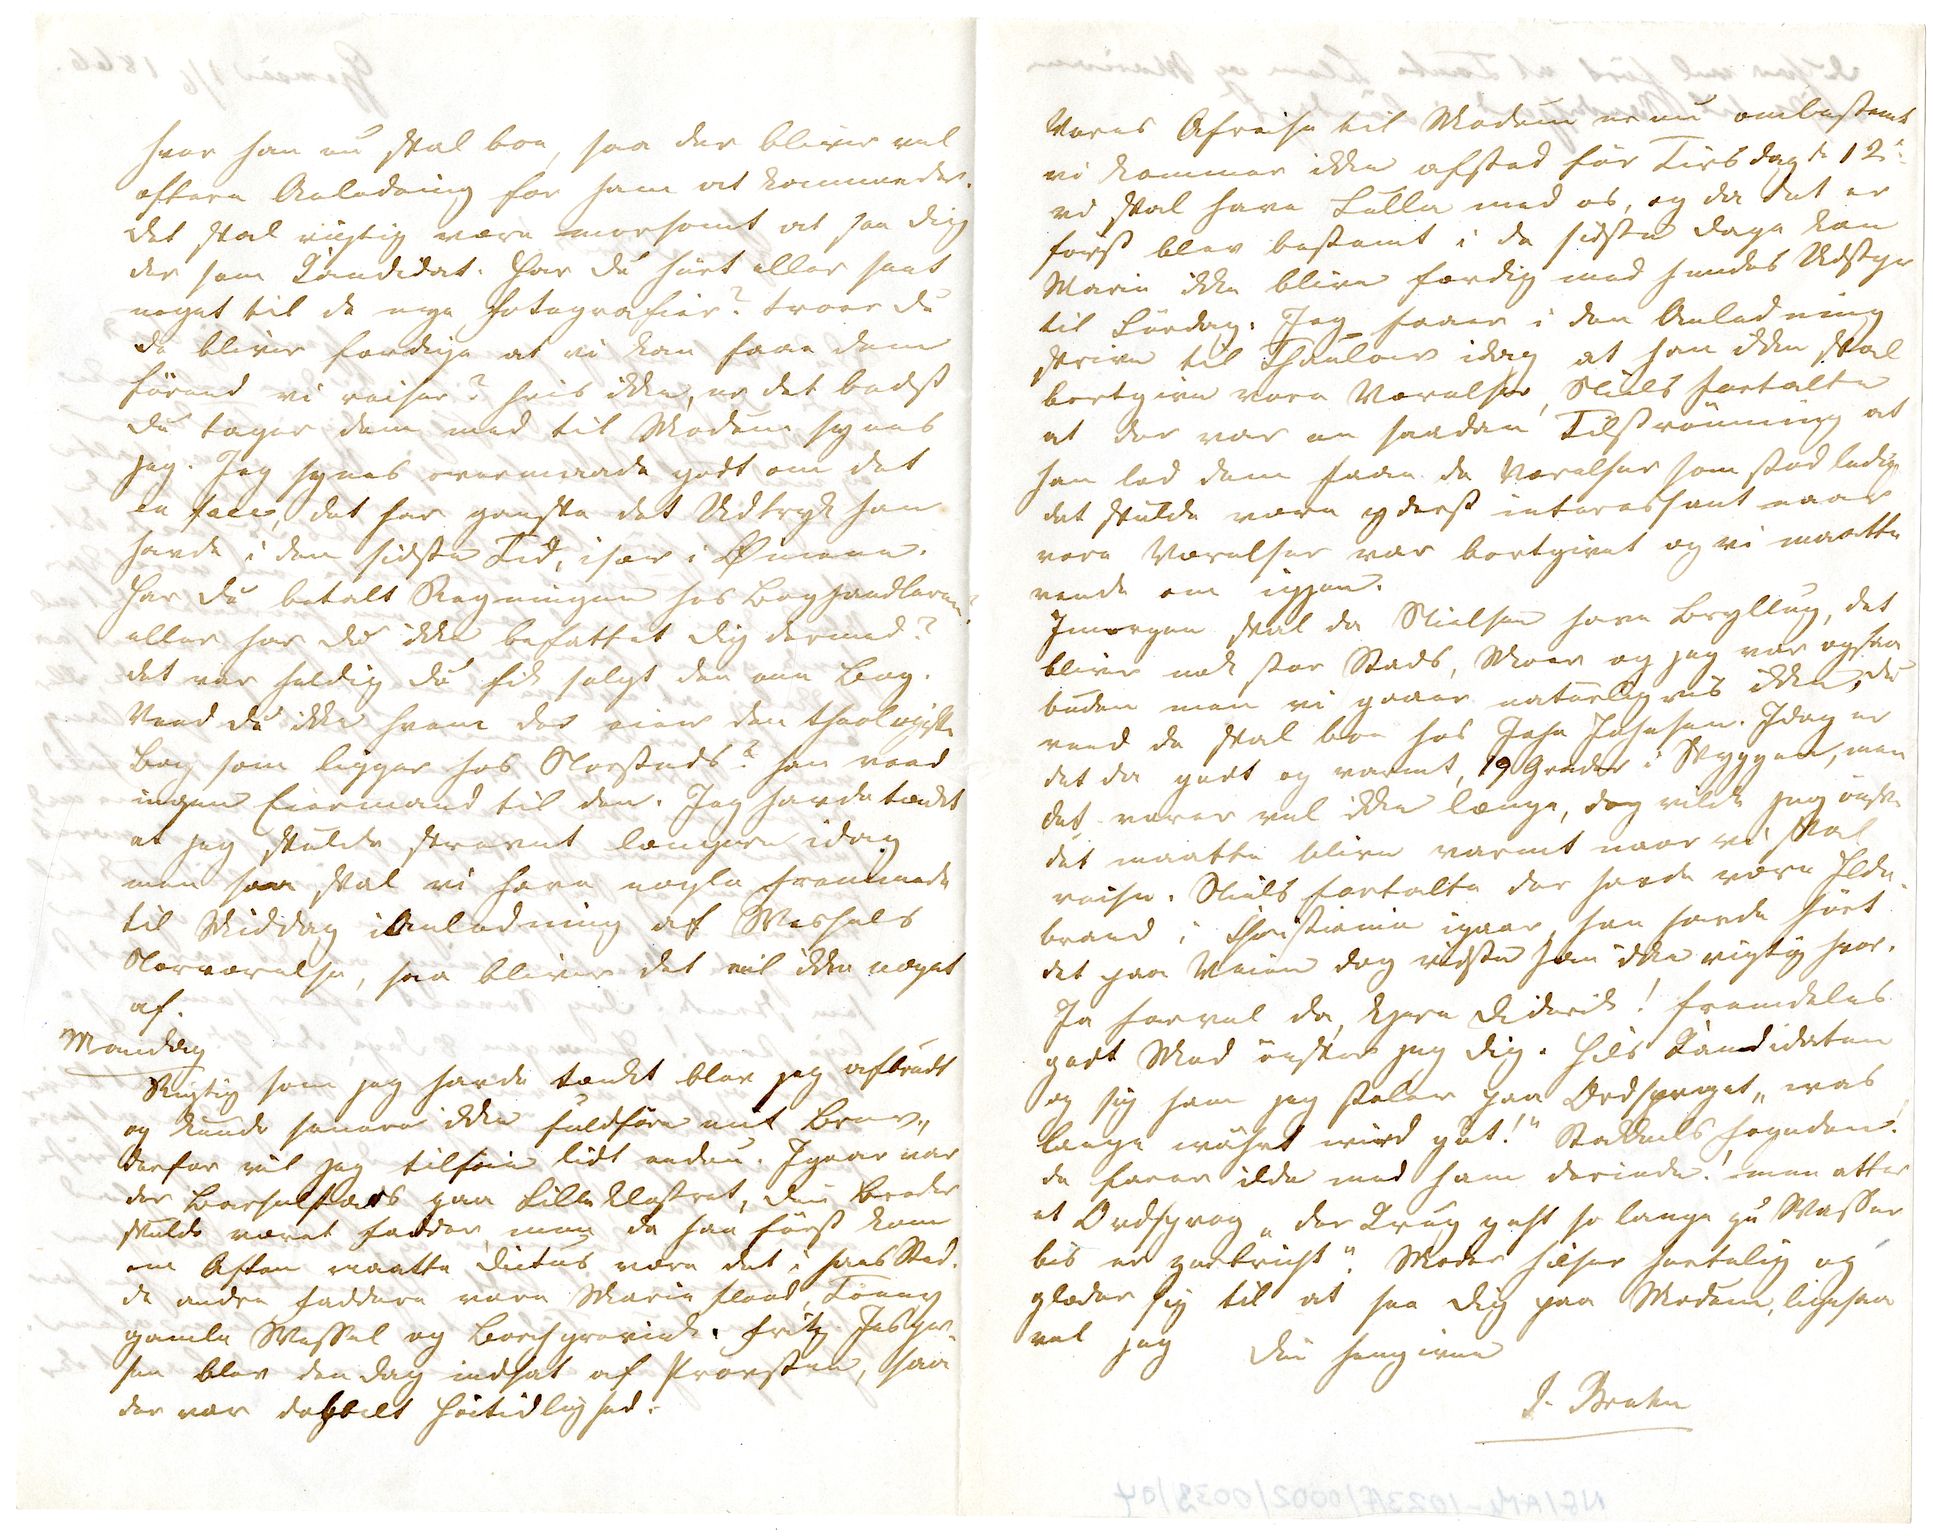 hvor han nu skal boe, saa der bliver vel
oftere Anledning for ham at komme der.
det skal rigtig være morsomt at see dig
der som Kandidat. Har du hört eller seet
noget til de nye Fotografier? troer du
de bliver færdige at vi kan faae dem
förend vi reiser? hvis ikke, er det bedst
du tager dem med til Modum synes
jeg. Jeg synes overmaade godt om det
en face, det har ganske det Udtryk han
havde i den sidste Tid, især i Øinene.
Har du betalt Regningen hos Boghandleren?
eller har du ikke befattet dig dermed?
det var heldig du fik solgt den ene Bog.
Veed du ikke hvem der eier den theologiske
Bog som ligger hos Norsteds? han veed
ingen Eiermand til den. Jeg havde tænkt
at jeg skulde skrevet længere idag
men saa skal vi have nogle fremmede
til Middag i Anledning af Wessels
Nærværelse, saa bliver det vel ikke noget
af.
Mandag
Rigtig som jeg havde tænkt blev jeg afbrudt
og kunde senere ikke fuldföre mit Brev,
derfor vil jeg tilföie lidt endnu. Igaar var
der Barselstads paa Lille Klostret, din Broder
skulde været Fadder, men da han först kom
om Aften maatte Ditus være det i hans Sted.
de andre Faddere vare Marie Flood, Tönny
gamle Wessel og Borchgrevink. Fritz Jesper-
sen blev den Dag indsat af Provsten, saa
der var dobbelt Höitidlighed.
Vores Afreise til Modum er nu ombestemt
vi kommer ikke afsted för Tirsdag d. 12te
vi skal have Lulla med os, og da det er
först blev bestemt i de sidste Dage kan
Marie ikke blive færdig med hendes Udstyr
til Lördag. Jeg faaer i den Anledning
skrive til Thaulow idag at han ikke skal
bortgive vore Værelser, Niels fortalte
at der var en saadan Tilströmning at
han lod dem faae de Værelser som stod ledig
det skulde være yderst interessant naar
vore Værelser var bortgivet og vi maatte
vende om igjen.
Imorgen skal da Nielsen have Bryllup, det
bliver nok stor Stads, Moer og jeg var ogsaa
buden men vi gaaer naturligvis ikke, du
veed de skal boe hos John Johnsen. Idag er
det da godt og varmt, 19 Grader i Skyggen, men
det varer vel ikke længe, dog vilde jeg önske
det maatte blive varmt naar vi skal
reise. Niels fortalte der havde være Ilde-
brand i Christiania igaar, han havde hört
det paa Veien dog vidste han ikke rigtig hvor.
Ja farvel da, kjere Diderik! fremdeles
godt Mod önsker jeg dig. Hils Kandidaten
og sig ham jeg stoler paa Ordsproget "was
lange währt wird gut!" Stakkels
de farer ilde med ham derinde! men atter
et Ordsprog "der Krug geht so lange zu Wasser
bis er zerbricht". Moder hilser hjertelig og
glæder sig til at see dig paa Modum, ligesaa
vel jeg Din hengivne
J. Bruhn